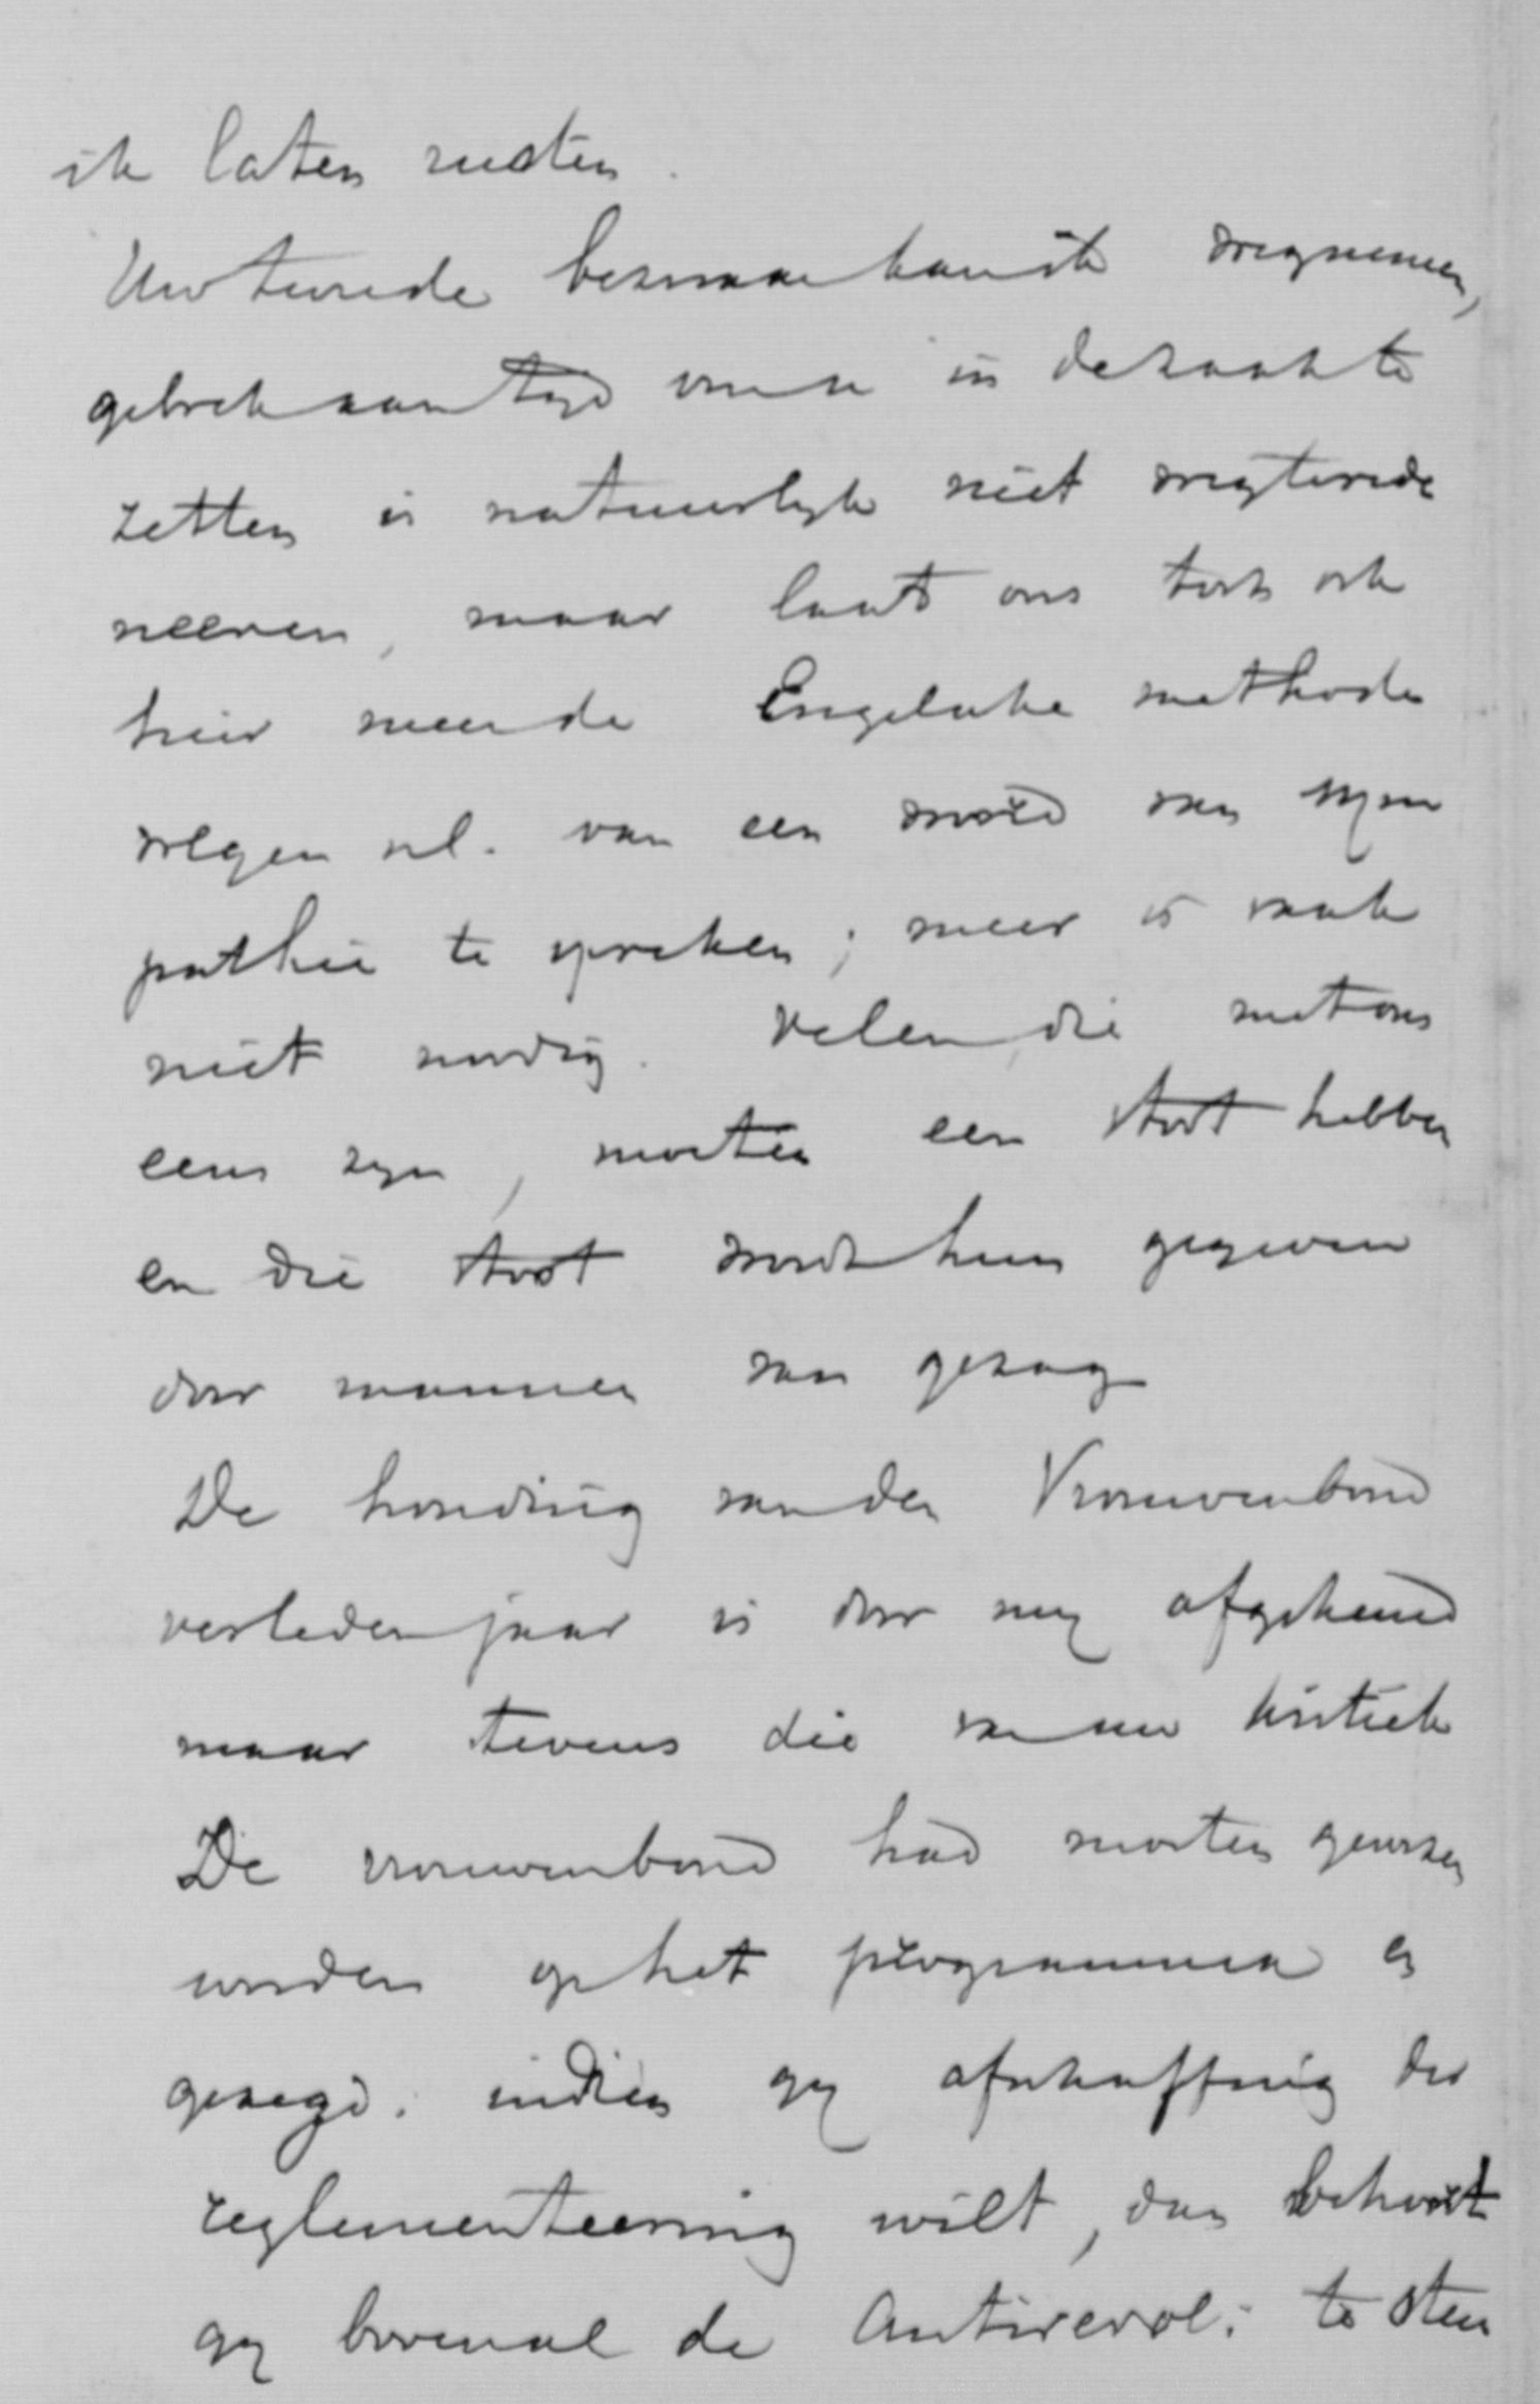 ik laten rusten.
Uw tweede bezwaar kan ik wegnemen,
gebrek aan tyd om u in de zaak te
zetten is natuurlyk niet weg te rede
neeren, maar laat ons toch ook
hier meer de Engelsche methode
volgen nl. van een woord van sym
pathie te spreken; meer is vaak
niet noodig. Velen, die met ons
eens zyn, moeten een stoot hebben
en die stoot wordt hun gegeven
door mannen van gezag
De houding van den Vrouwenbond
verleden jaar is door my afgekeurd
maar tevens die van uw kritiek
De vrouwenbond had moeten gewezen
worden op het programma en
gezegd: indien gy afschaffing der
reglementeering wilt, dan behoort
gy bovenal de Antirevol: te steu